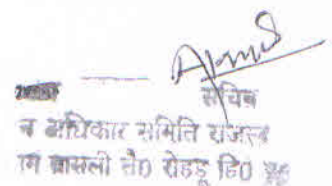 सचिव
न अधिकार समिति राजस्व
ाम बासली तै0 रोहडू डि0